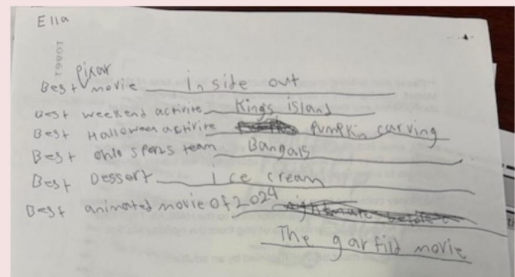 Ella
pixar
Best movie Inside out
Best weekend activite Kings island
Best Halloween activite Pumpkin carving
Best ohio sports team Bangals
Best Dessert Ice cream
Best animated movie of 2024
The garfild movie